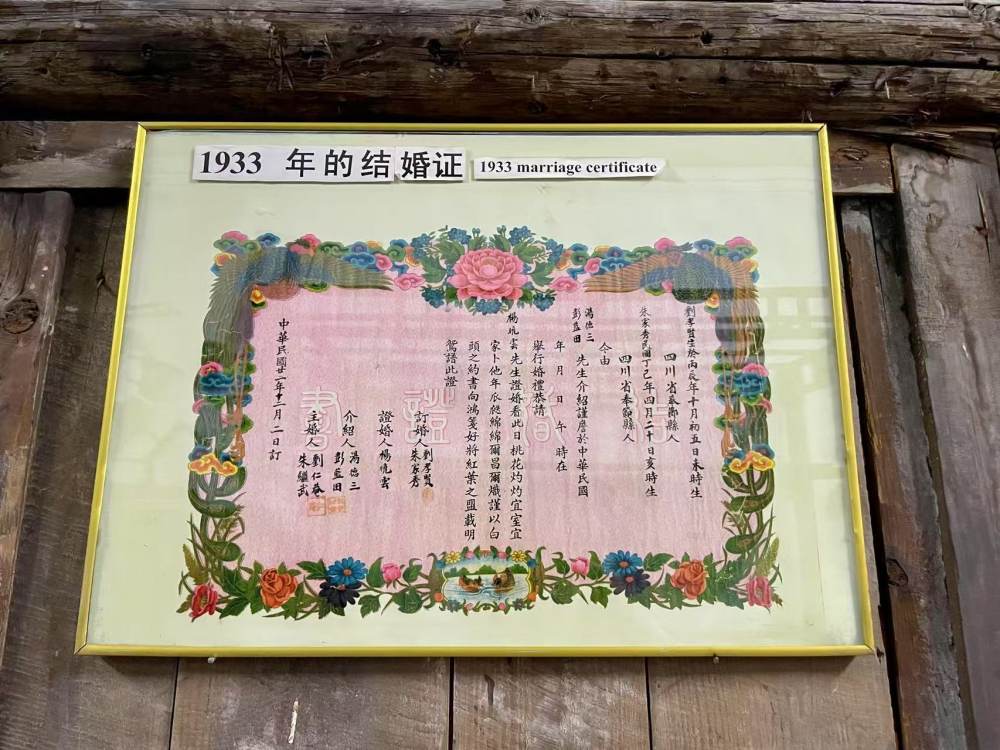 1933 年的结婚证
1933 marriage certificate
劉孝賢生於丙辰年十月初五日未時生
四川省奉節縣人
朱家秀民國丁巳年四月二十日亥時生
四川省奉節縣人
今由
馮德三
彭藍田
先生介紹謹詹於中華民國
年 月 日 午 時在
舉行婚禮恭請
楊 雲先生證婚看此日桃花灼灼宜室宜
家卜他年瓜瓞綿綿爾昌爾熾謹以白
頭之約書向鴻箋好將紅葉之盟載明
鴛譜此證
訂婚人劉孝賢
朱家秀
證婚人楊 雲
介紹人馮德三
彭藍田
主婚人劉仁
朱繼武
中華民國廿 年 月二日訂
證書